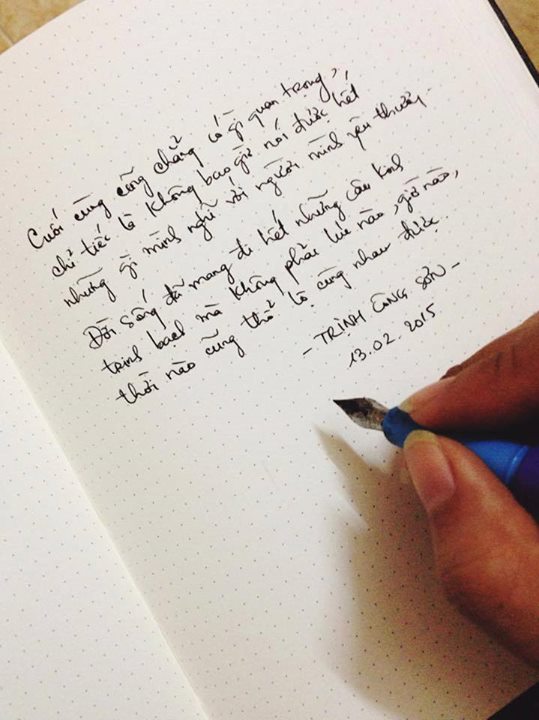 Cuối cùng cũng chẳng có gì quan trọng,
chỉ tiếc là không bao giờ nói được hết
những gì mình nghĩ với người mình yêu thương.
Đời sống đã mang đi hết những câu kinh
trinh bạch mà không phải lúc nào, giờ nào,
thời nào cũng thổ lộ cùng nhau được..
- TRỊNH CÔNG SƠN -
13.02.2015